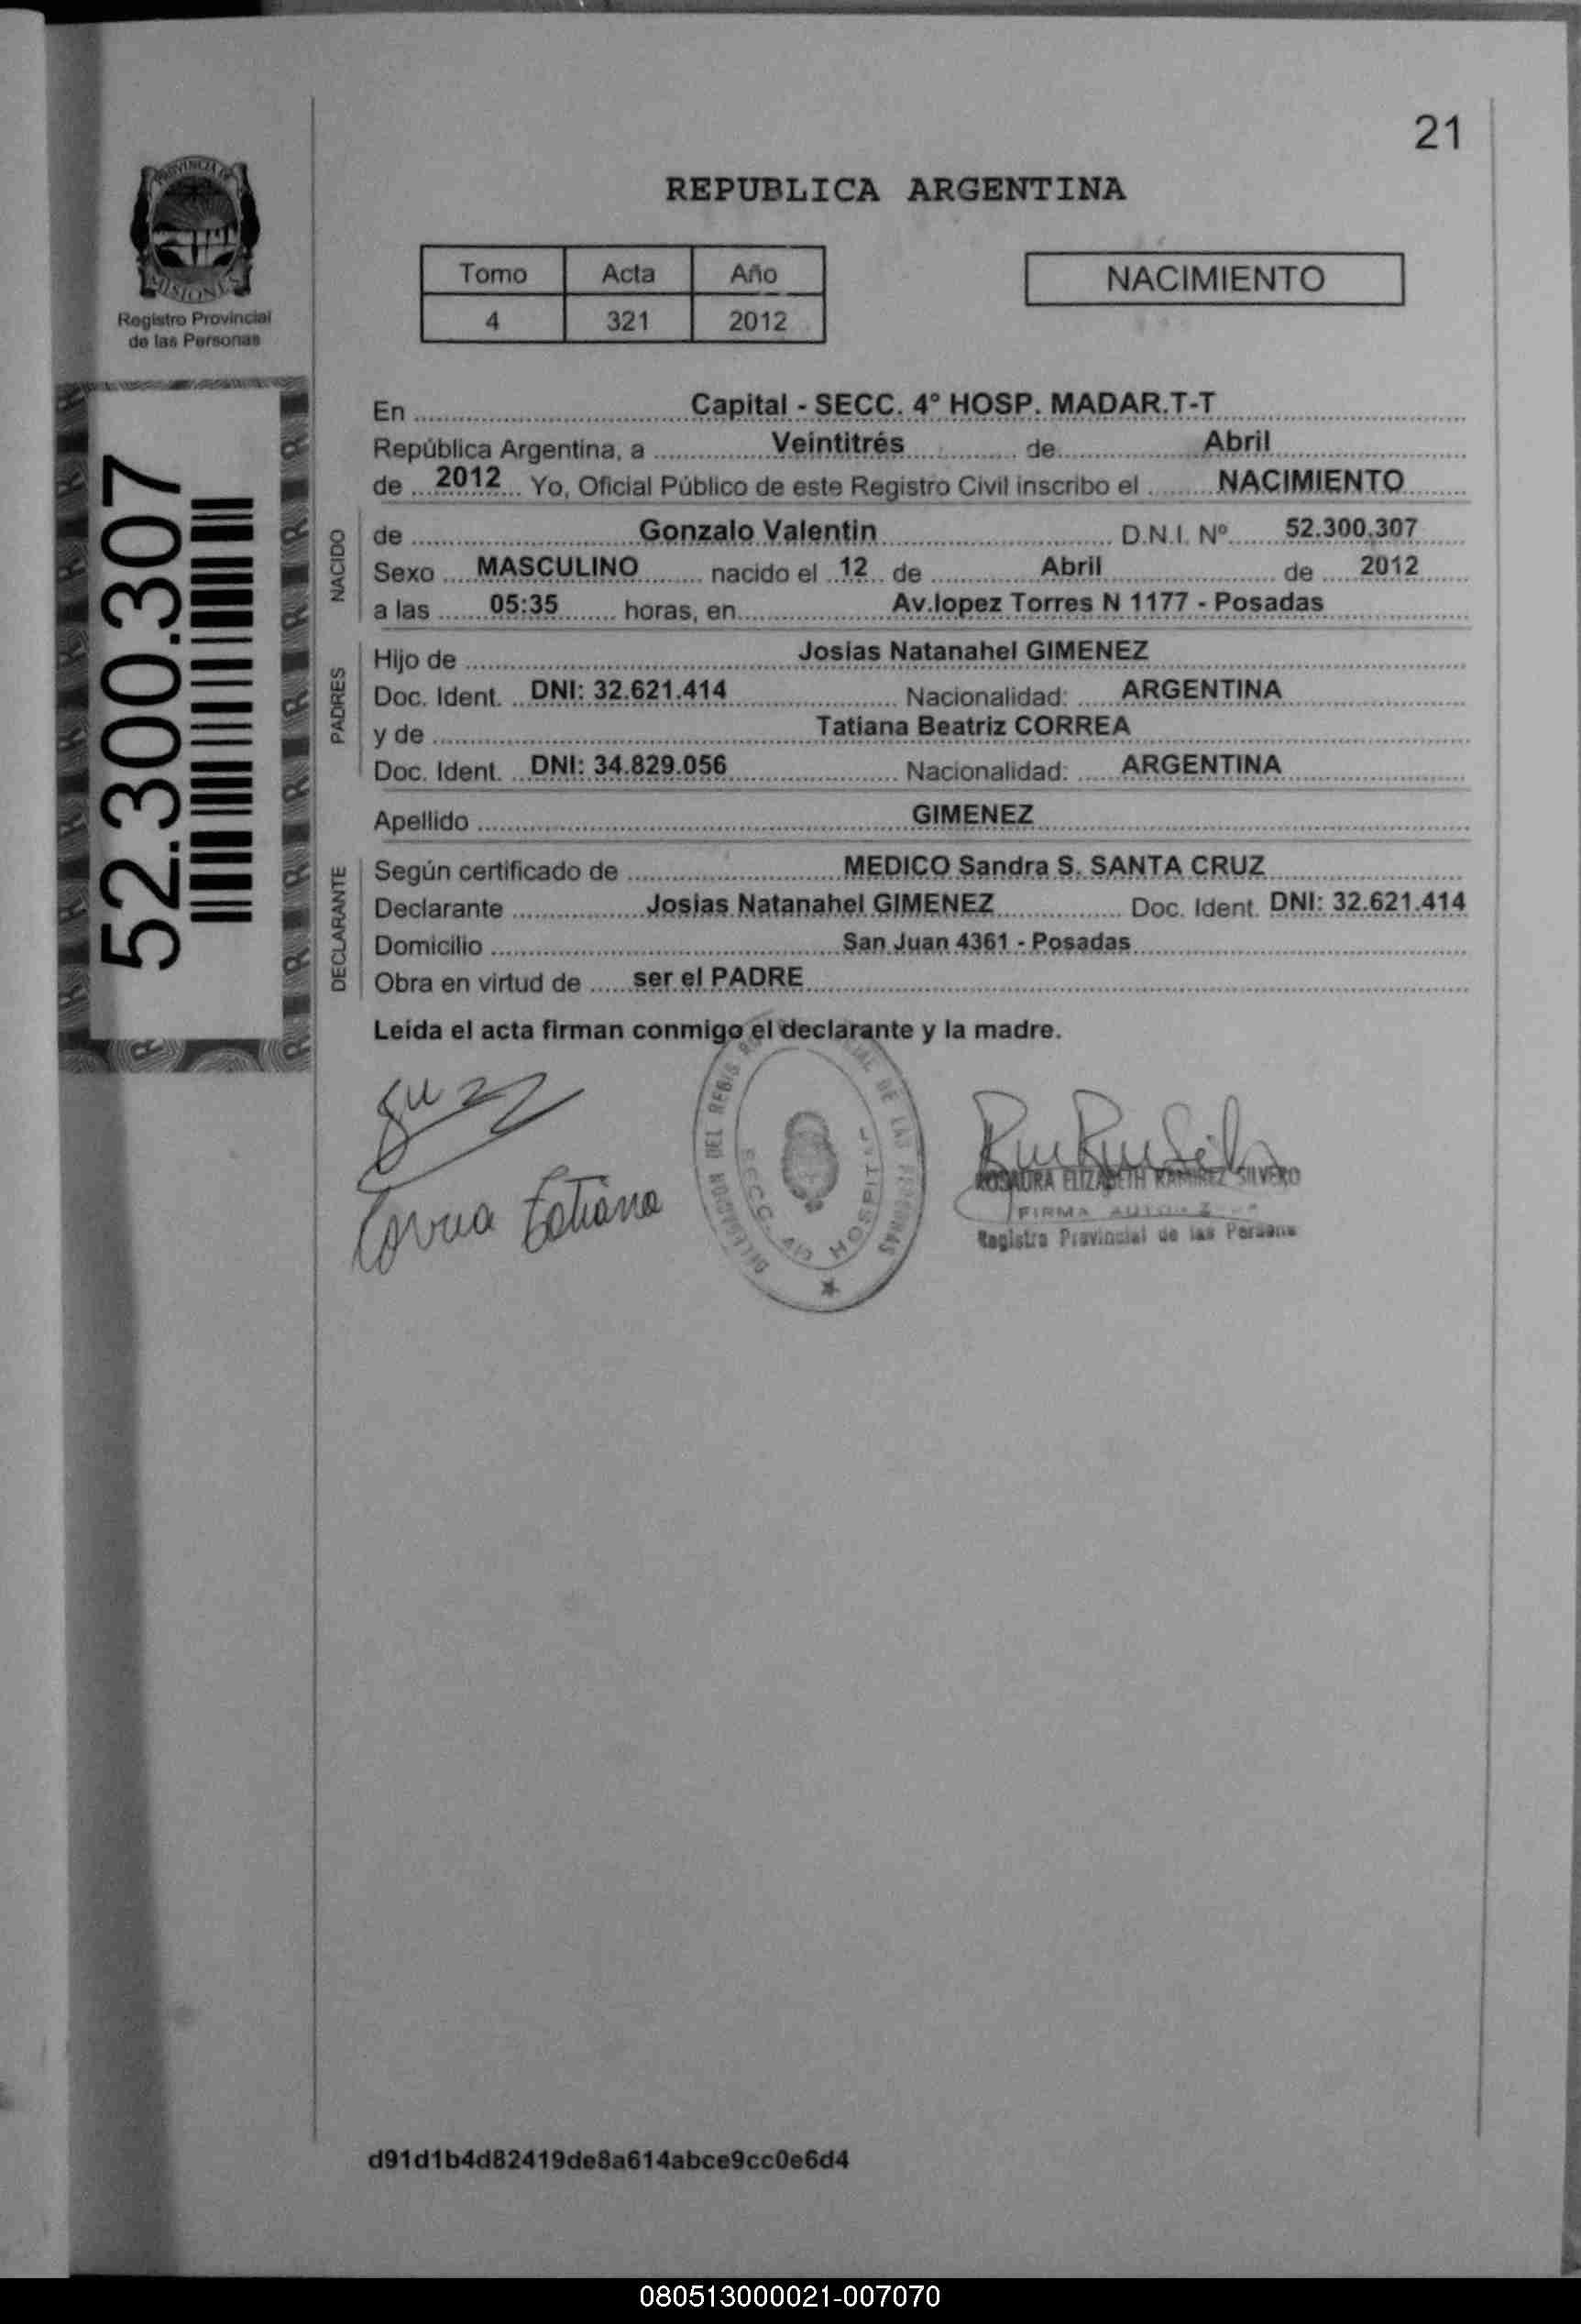 21
PROVINCIA DE
MISIONES
Registro Provincial
de las Personas
REPUBLICA ARGENTINA
Tomo Acta Año
4 321 2012
NACIMIENTO
52.300.307
En Capital - SECC. 4° HOSP. MADAR.T-T
República Argentina, a Veintitrés de Abril
de 2012 Yo, Oficial Público de este Registro Civil inscribo el NACIMIENTO
NACIDO
de Gonzalo Valentin D.N.I. Nº 52.300.307
Sexo MASCULINO nacido el 12 de Abril de 2012
a las 05:35 horas, en Av.lopez Torres N 1177 - Posadas
PADRES
Hijo de Josias Natanahel GIMENEZ
Doc. Ident. DNI: 32.621.414 Nacionalidad: ARGENTINA
y de Tatiana Beatriz CORREA
Doc. Ident. DNI: 34.829.056 Nacionalidad: ARGENTINA
Apellido GIMENEZ
DECLARANTE
Según certificado de MEDICO Sandra S. SANTA CRUZ
Declarante Josias Natanahel GIMENEZ Doc. Ident. DNI: 32.621.414
Domicilio San Juan 4361 - Posadas
Obra en virtud de ser el PADRE
Leida el acta firman conmigo el declarante y la madre.
Correa Tatiana
DELEGACION DEL REGIS DE LAS PERSONAS
SECC. 4° HOSPITAL
ROSAURA ELIZABETH RAMIREZ SILVERO
FIRMA
Registro Provincial de las Persona
d91d1b4d82419de8a614abce9cc0e6d4
080513000021-007070